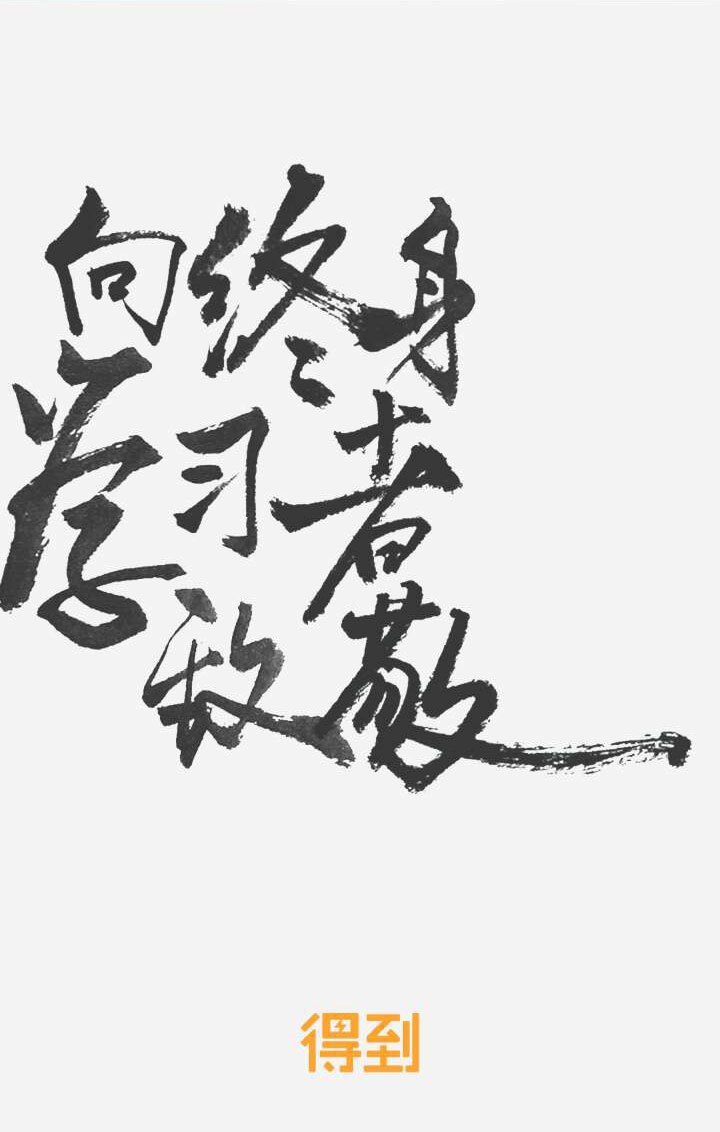 向终身
学习者
致敬
得到